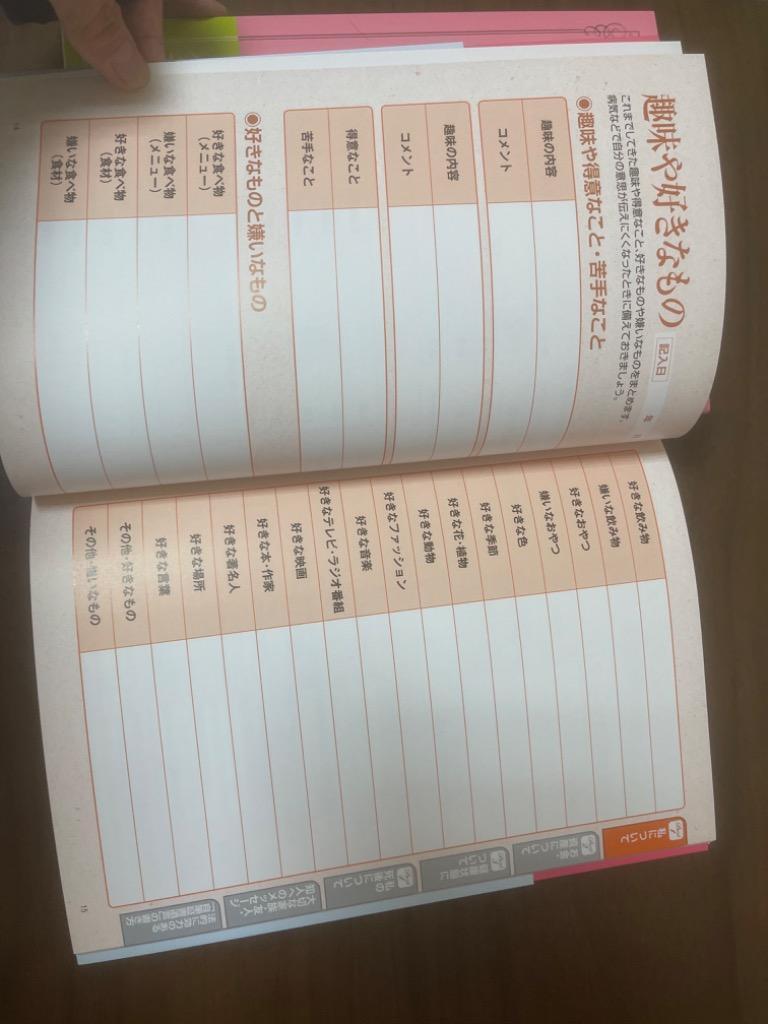 趣味や好きなもの
記入日 年 月
これまでしてきた趣味や得意なこと、好きなものや嫌いなものをまとめます。
病気などで自分の意思が伝えにくくなったときに備えておきましょう。
●趣味や得意なこと・苦手なこと
趣味の内容
コメント
趣味の内容
コメント
得意なこと
苦手なこと
●好きなものと嫌いなもの
好きな食べ物
(メニュー)
嫌いな食べ物
(メニュー)
好きな食べ物
(食材)
嫌いな食べ物
(食材)
14
好きな飲み物
嫌いな飲み物
好きなおやつ
嫌いなおやつ
好きな色
好きな季節
好きな花・植物
好きな動物
好きなファッション
好きな音楽
好きなテレビ・ラジオ番組
好きな映画
好きな本・作家
好きな著名人
好きな場所
好きな言葉
その他・好きなもの
その他・嫌いなもの
私
について
お金・
資産について
健康状態に
ついて
私の
死後について
大切な家族・友人・
知人へのメッセージ
法的に効力のある
「自筆証書遺言」の書き方
15